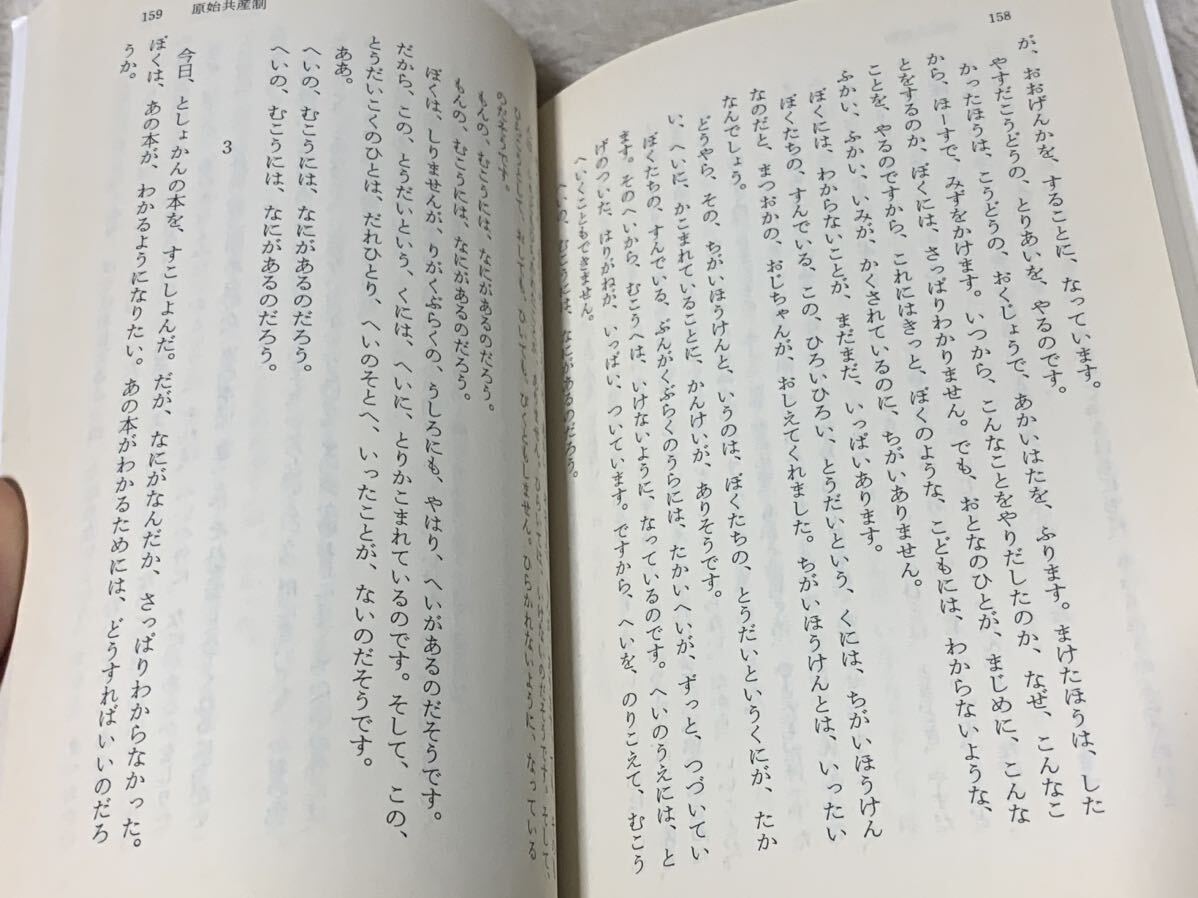 158
が、おおげんかを、することに、なっています。
やすだこうどうの、とりあいを、やるのです。
かったほうは、こうどうの、おくじょうで、あかいはたを、ふります。まけたほうは、した
から、ほーすで、みずをかけます。いつから、こんなことをやりだしたのか、なぜ、こんなこ
とをするのか、ぼくには、さっぱりわかりません。でも、おとなのひとが、まじめに、こんな
ことを、やるのですから、これにはきっと、ぼくのような、こどもには、わからないような、
ふかい、ふかい、いみが、かくされているのに、ちがいありません。
ぼくには、わからないことが、まだまだ、いっぱいあります。
ぼくたちの、すんでいる、この、ひろいひろい、とうだいという、くには、ちがいほうけん
なのだと、まつおかの、おじちゃんが、おしえてくれました。ちがいほうけんとは、いったい
なんでしょう。
どうやら、その、ちがいほうけんと、いうのは、ぼくたちの、とうだいというくにが、たか
い、へいに、かこまれていることに、かんけいが、ありそうです。
ぼくたちの、すんでいる、ぶんがくぶらくのうらには、たかいへいが、ずっと、つづいてい
ます。そのへいから、むこうへは、いけないように、なっているのです。へいのうえには、と
げのついた、はりがねが、いっぱい、ついています。ですから、へいを、のりこえて、むこう
へいくこともできません。
へいの、むこうには、なにがあるのだろう。
159 原始共産制
のだそうです。
もんの、むこうには、なにがあるのだろう。
もんの、むこうには、なにがあるのだろう。
ぼくは、しりませんが、りがくぶらくの、うしろにも、やはり、へいがあるのだそうです。
だから、この、とうだいという、くには、へいに、とりかこまれているのです。そして、この、
とうだいこくのひとは、だれひとり、へいのそとへ、いったことが、ないのだそうです。
ああ。
へいの、むこうには、なにがあるのだろう。
へいの、むこうには、なにがあるのだろう。
3
今日、としょかんの本を、すこしよんだ。だが、なにがなんだか、さっぱりわからなかった。
ぼくは、あの本が、わかるようになりたい。あの本がわかるためには、どうすればいいのだろ
うか。